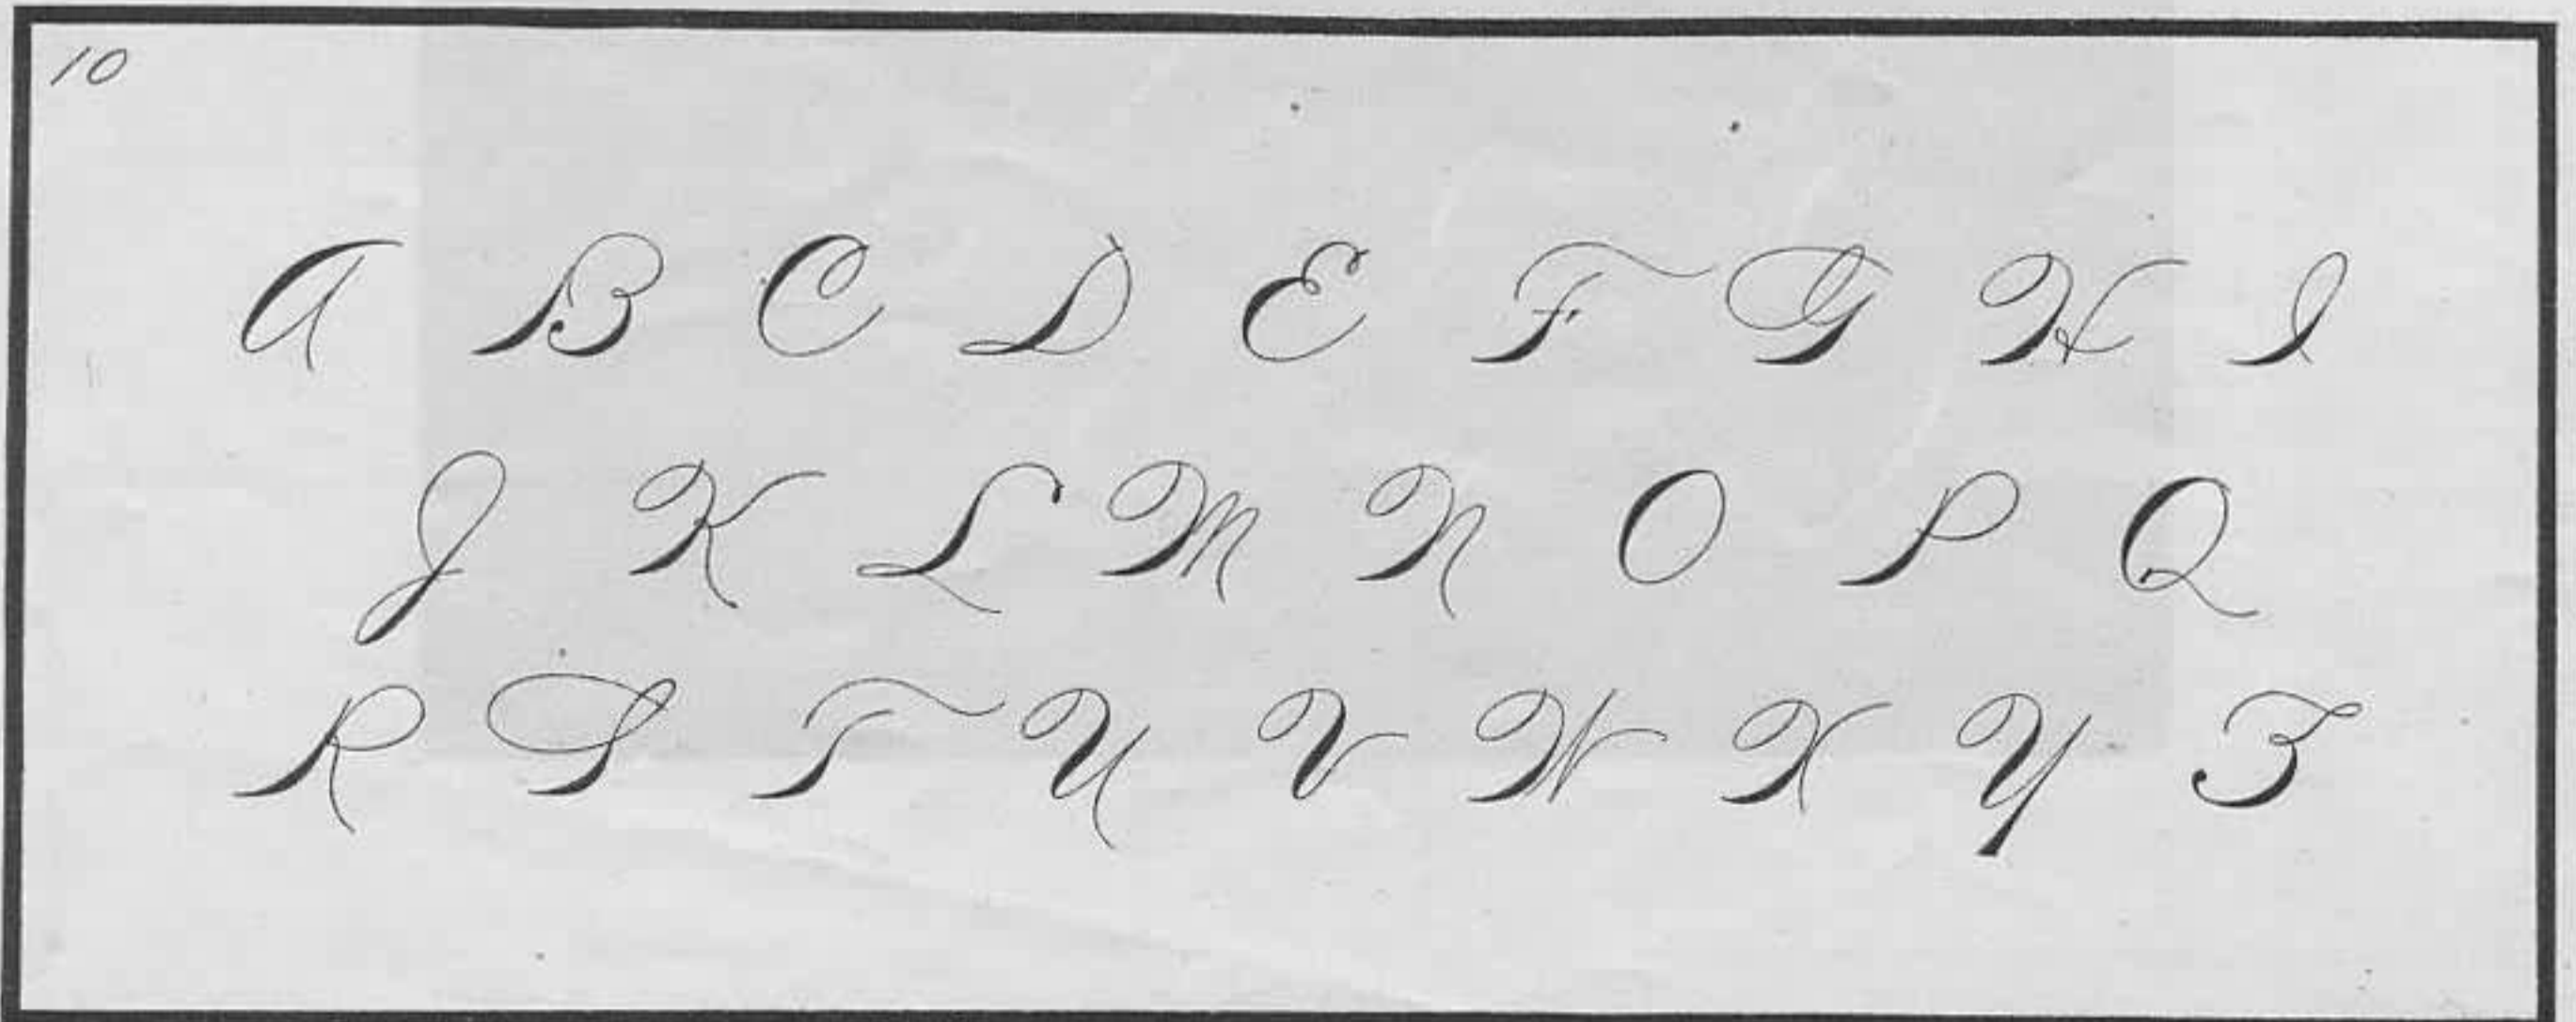 10
A B C D E F G H I
J K L M N O P Q
R S T U V W X Y Z